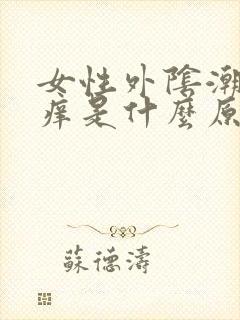 女性外陰潮
痒是什麼原
蘇德濤